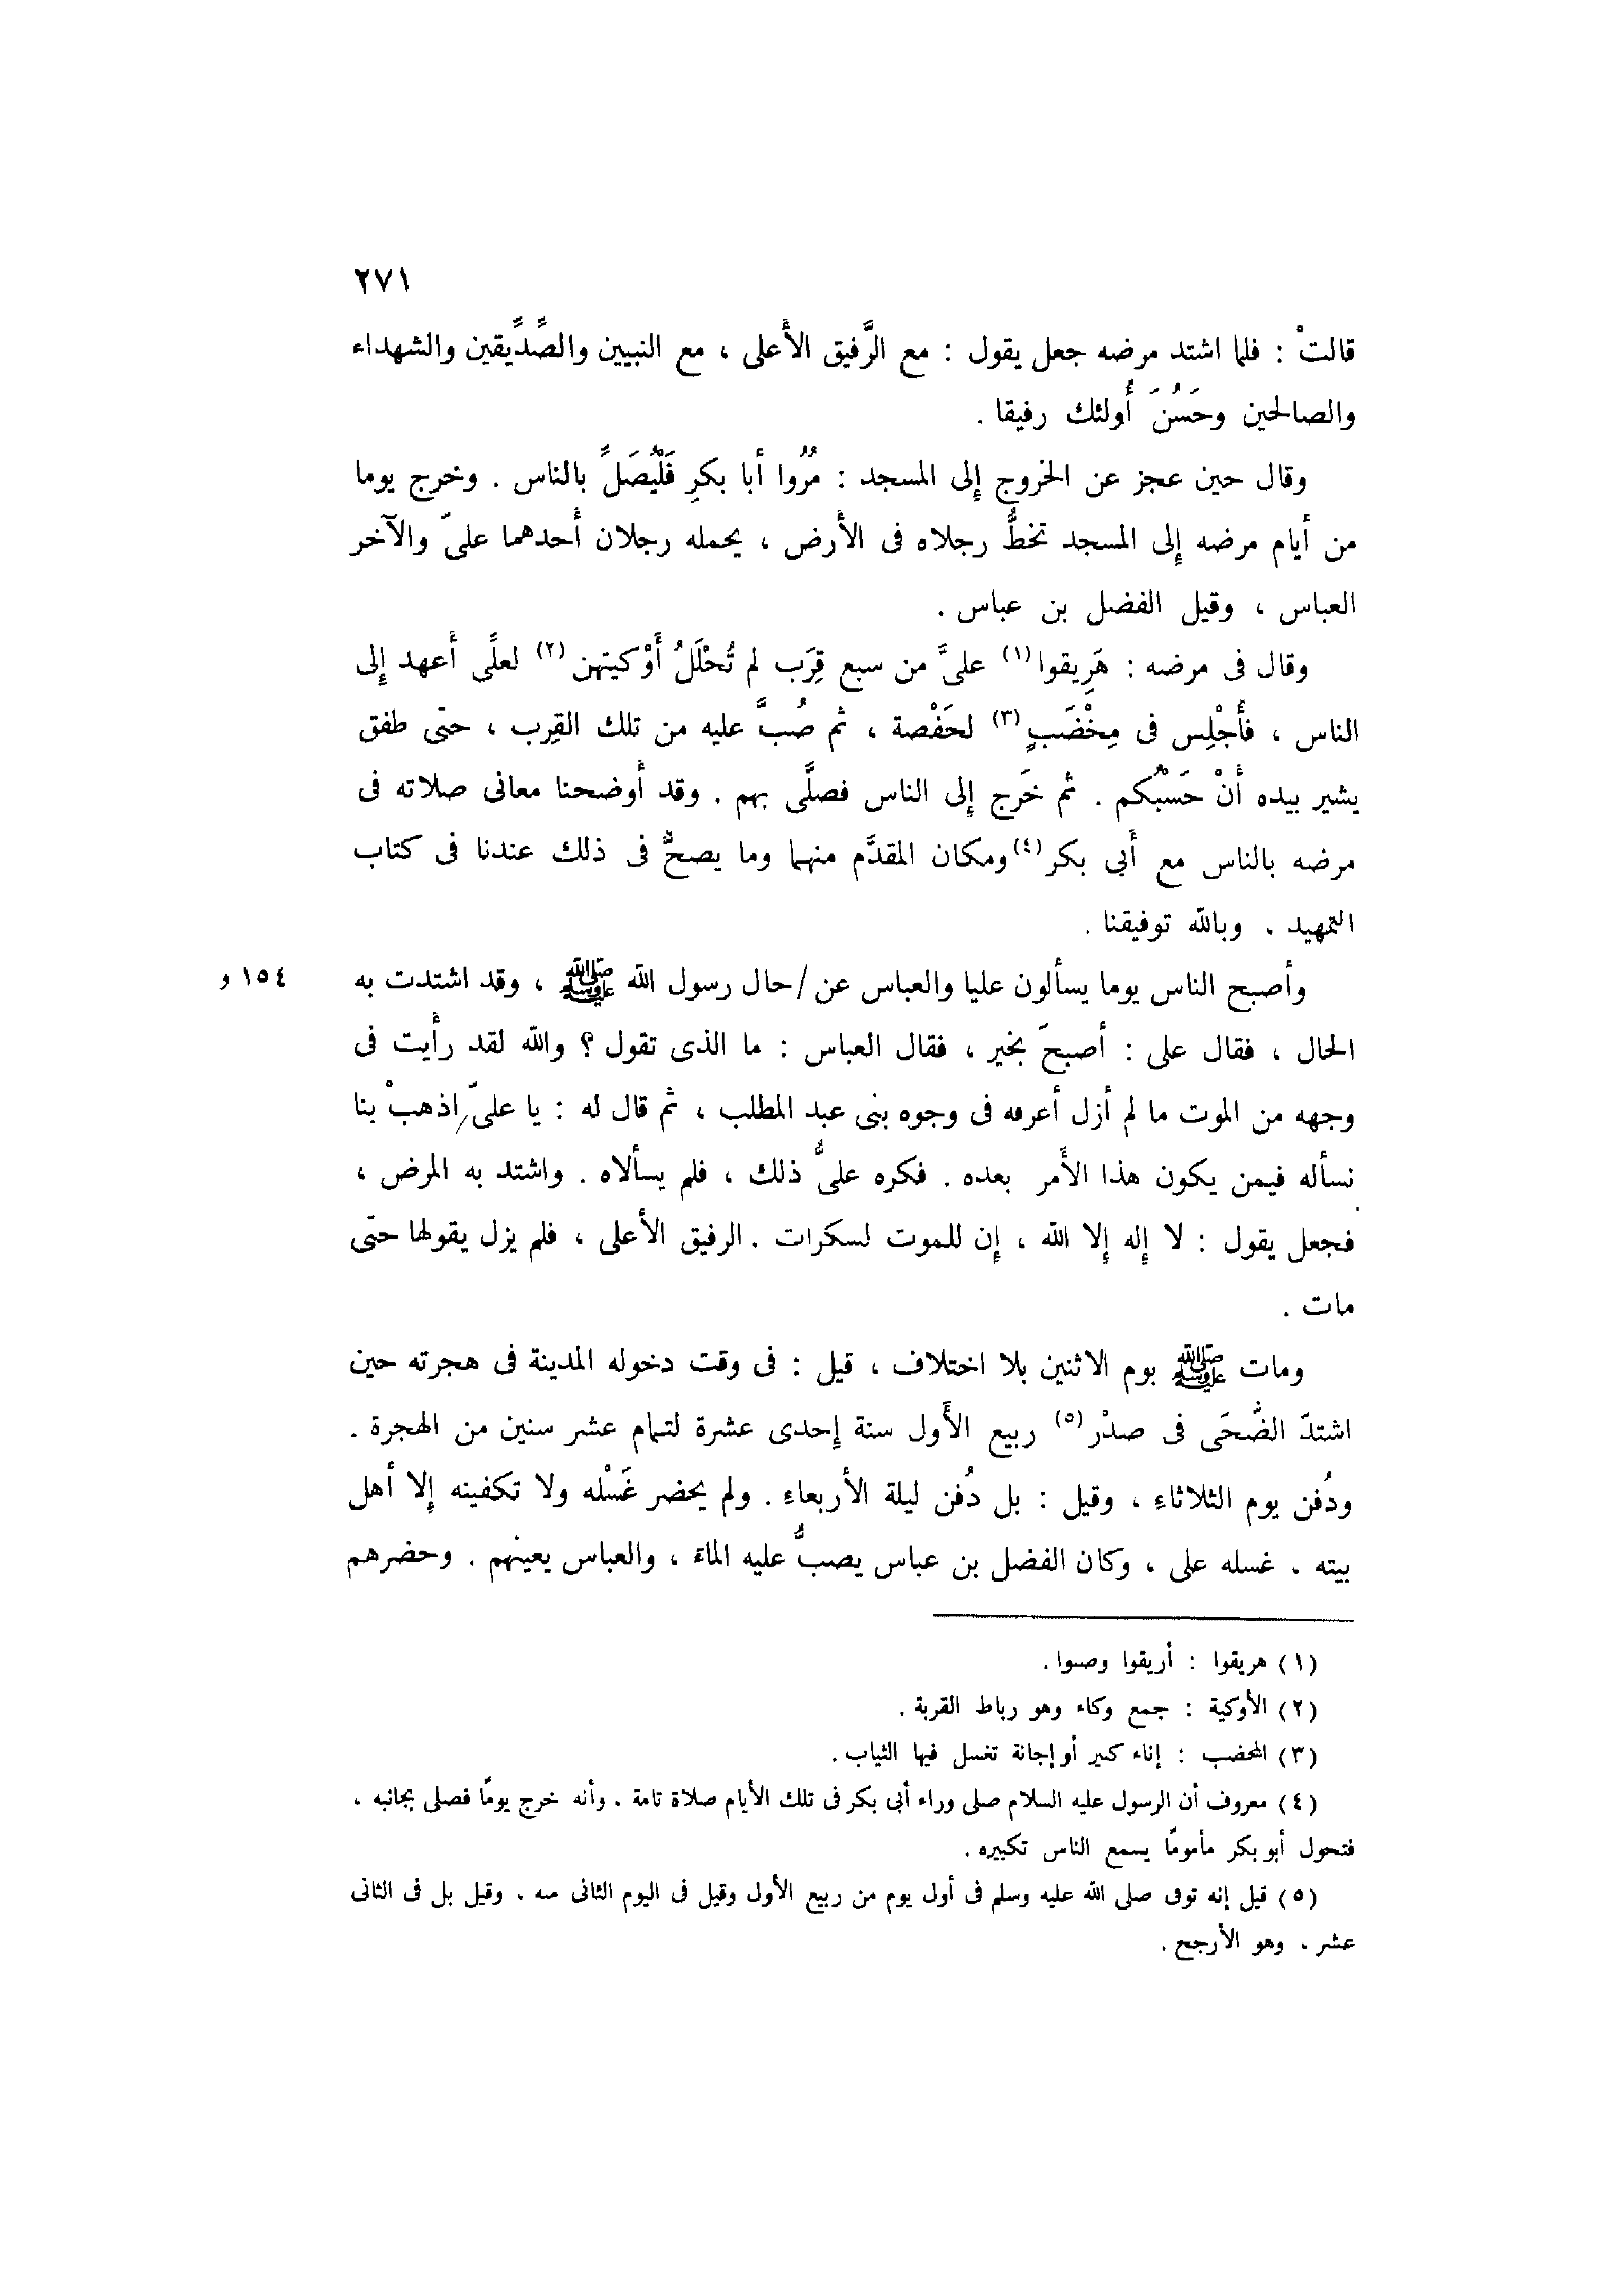 ٢٧١
قالتْ : فلما اشتد مرضه جعل يقول : مع الرَّفيق الأَعلى ، مع النبيين والصِّدِّيقين والشهداء
والصالحين وحَسُنَ أُولئك رفيقا .
وقال حين عجز عن الخروج إلى المسجد : مُرُوا أبا بكرِ فَلْيُصَلِّ بالناس . وخرج يوما
من أيام مرضه إلى المسجد تخطُّ رجلاه فى الأَرض ، يحمله رجلان أَحدهما علىّ والآخر
العباس ، وقيل الفضل بن عباس .
وقال فى مرضه : هَرِيقوا (١) علىَّ من سبع قِرَب لم تُحْلَلُ أَوْكيتهن (٢) لعلِّى أَعهد إلى
الناس ، فأُجْلِس فى مِخْضَبٍ (٣) لحَفْصة ، ثم صُبَّ عليه من تلك القِرب ، حتّى طفق
يشير بيده أَنْ حَسْبُكم . ثم خَرج إلى الناس فصلَّى بهم . وقد أَوضحنا معانى صلاته فى
مرضه بالناس مع أَبى بكر (٤) ومكان المقدَّم منهما وما يصحُّ فى ذلك عندنا فى كتاب
التمهيد . وبالله توفيقنا .
وأصبح الناس يوما يسألون عليا والعباس عن / حال رسول الله ﷺ ، وقد اشتدت به ١٥٤ و
الحال ، فقال على : أَصبحَ بخير ، فقال العباس : ما الذى تقول ؟ والله لقد رأَيت فى
وجهه من الموت ما لم أزل أَعرفه فى وجوه بنى عبد المطلب ، ثم قال له : يا علىّ اذهبْ بنا
نسأله فيمن يكون هذا الأَمر بعده . فكره علىُّ ذلك ، فلم يسألاه . واشتد به المرض ،
فجعل يقول : لا إله إلا الله ، إن للموت لسكرات . الرفيق الأَعلى ، فلم يزل يقولها حتّى
مات .
ومات ﷺ يوم الاثنين بلا اختلاف ، قيل : فى وقت دخوله المدينة فى هجرته حين
اشتدّ الضُّحَى فى صدْر (٥) ربيع الأَول سنة إحدى عشرة لتمام عشر سنين من الهجرة .
ودُفن يوم الثلاثاء ، وقيل : بل دُفن ليلة الأربعاء . ولم يحضر غَسْله ولا تكفينه إلا أهل
بيته . غسله على ، وكان الفضل بن عباس يصبُّ عليه الماءَ ، والعباس يعينهم . وحضرهم
(١) هريقوا : أريقوا وصبوا .
(٢) الأوكية : جمع وكاء وهو رباط القربة .
(٣) المخضب : إناء كبير أو إجانة تغسل فيها الثياب .
(٤) معروف أن الرسول عليه السلام صلى وراء أبى بكر فى تلك الأيام صلاة تامة . وأنه خرج يومًا فصلى بجانبه ،
فتحول أبو بكر مأمومًا يسمع الناس تكبيره .
(٥) قيل إنه توفى صلى الله عليه وسلم فى أول يوم من ربيع الأول وقيل فى اليوم الثانى منه . وقيل بل فى الثانى
عشر ، وهو الأرجح .